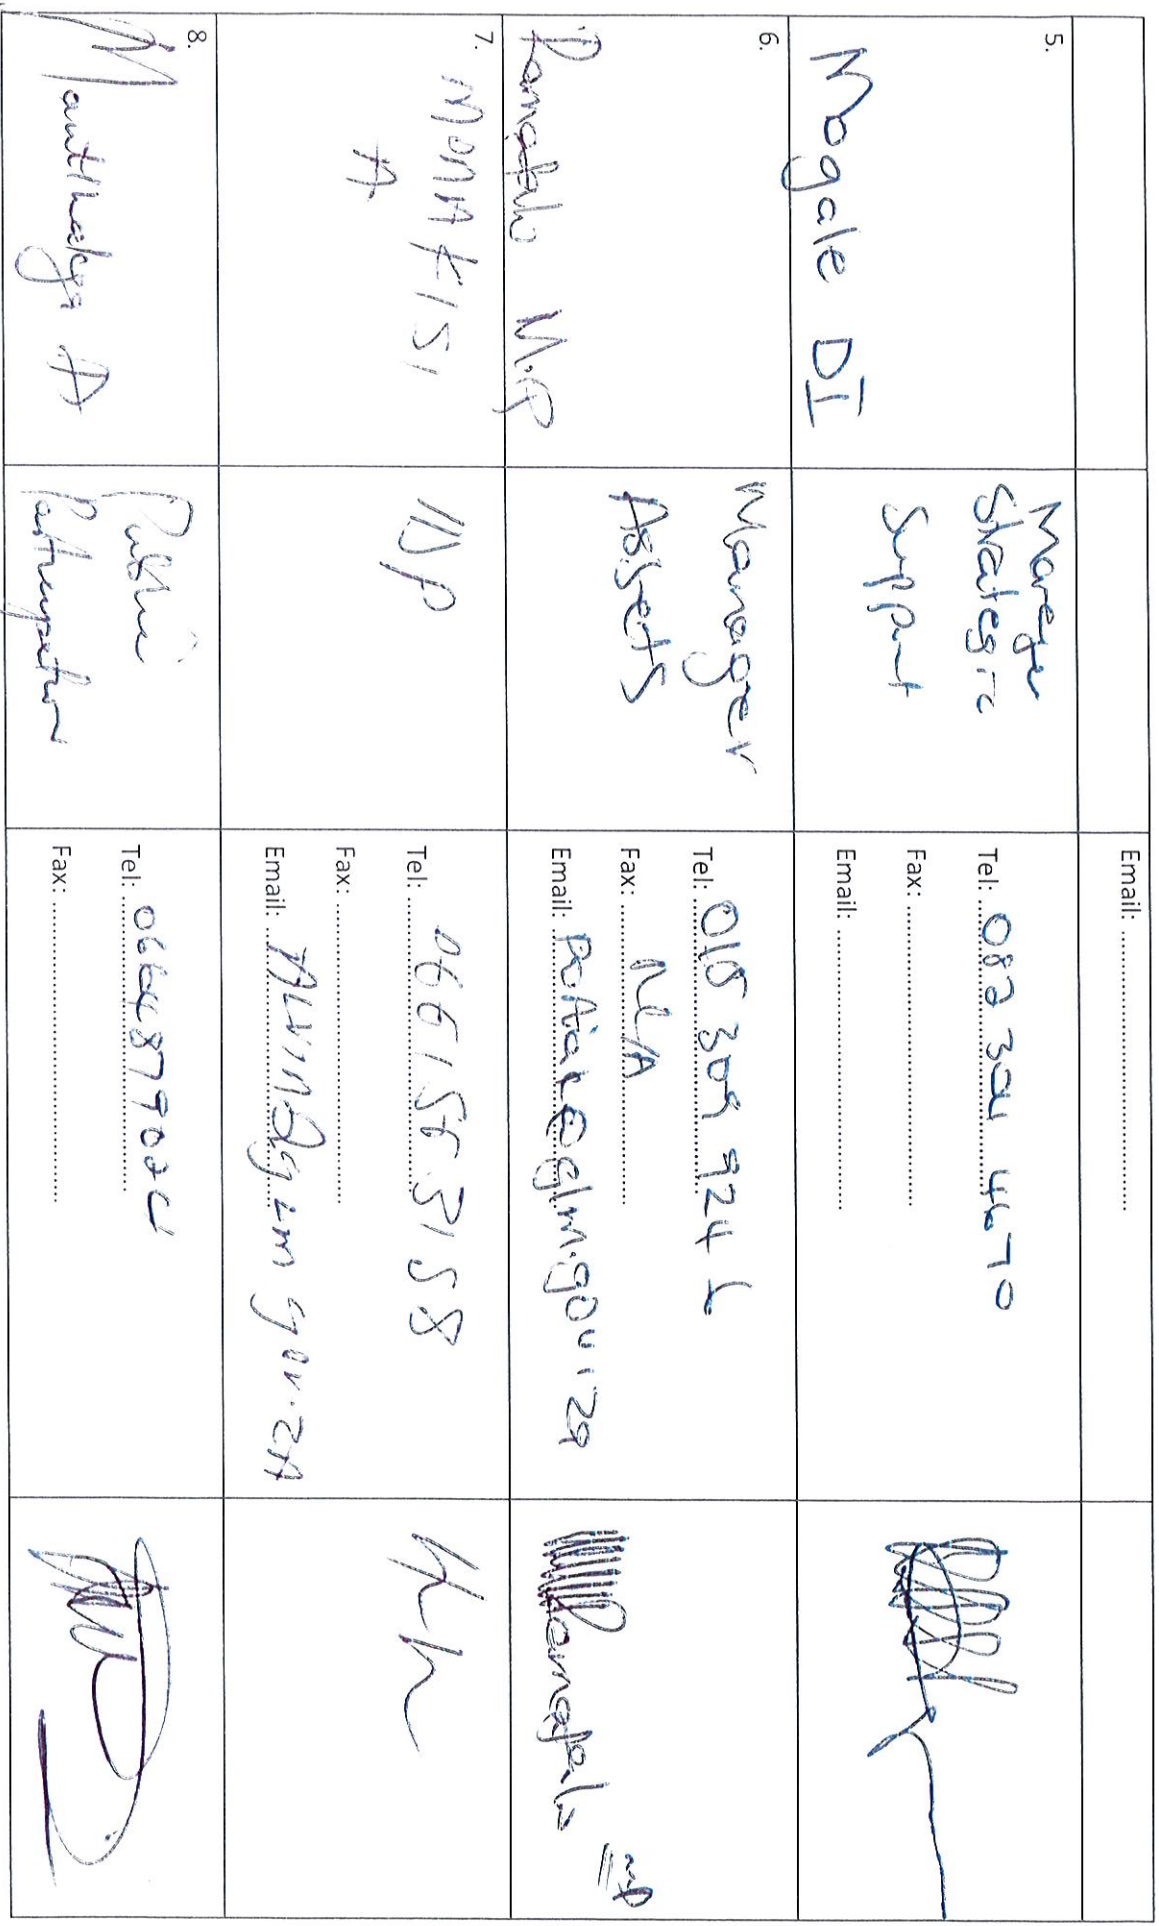 Email: ..............................
5.
Mogale DI
Manager
Strategic
Support
Tel: 082 304 4670
Fax: ..............................
Email: ..............................
6.
Ramafalo M.P
Manager
Assets
Tel: 015 309 924
Fax: N/A
Email: @glm.gov.za
7.
MONAKISI
A
IDP
Tel: 0661563158
Fax: ..............................
Email: ALVIN@glm gov.ZA
8.
A
Public
Participation
Tel:
Fax: ..............................